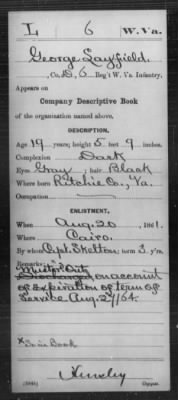 L 6 W. Va.
George Layfield,
, Co. D, 6 Reg't W. Va Infantry.
Appears on
Company Descriptive Book
of the organization named above.
DESCRIPTION.
Age 19 years; height 5 feet 9 inches.
Complexion Dark
Eyes Gray; hair Black
Where born Ritchie Co., Va.
Occupation —
ENLISTMENT.
When Aug. 20, 1861.
Where Cairo.
By whom Cpt. Skelton; term 3 y'rs.
Remarks:
Muster Out
Discharged on account
of expiration of term of
Service Aug. 27/64.
x So in Book
Copyist.